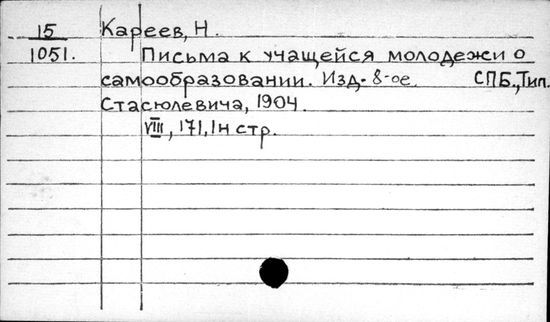 15 Кареев, Н.
1051. Письма к учащейся молодежи о
самообразовании. Изд. 8-ое. СПБ., Тип.
Стасюлевича, 1904.
VIII, 171, 1н стр.